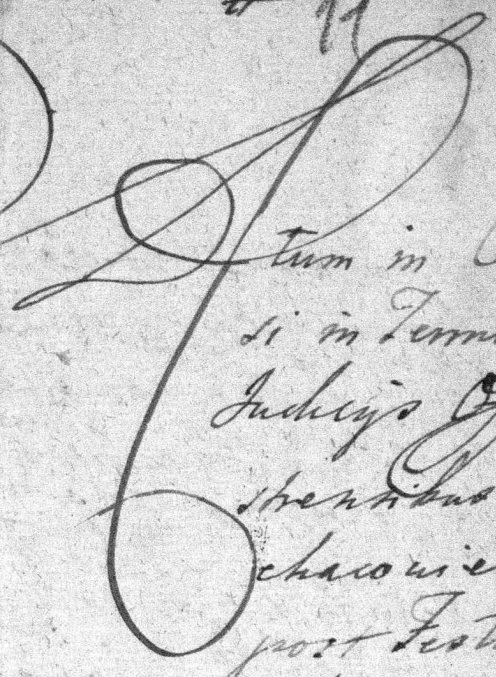 Actum in
si in Termi
Judicijs
strensibus
chacovie
post Fest